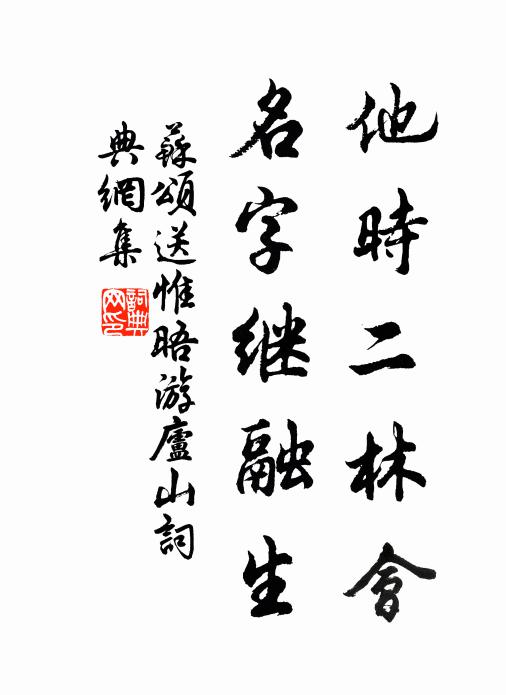 他時二林會
名字继融生
蘇頌送惟晤游廬山詞
典網集
詞典
网印